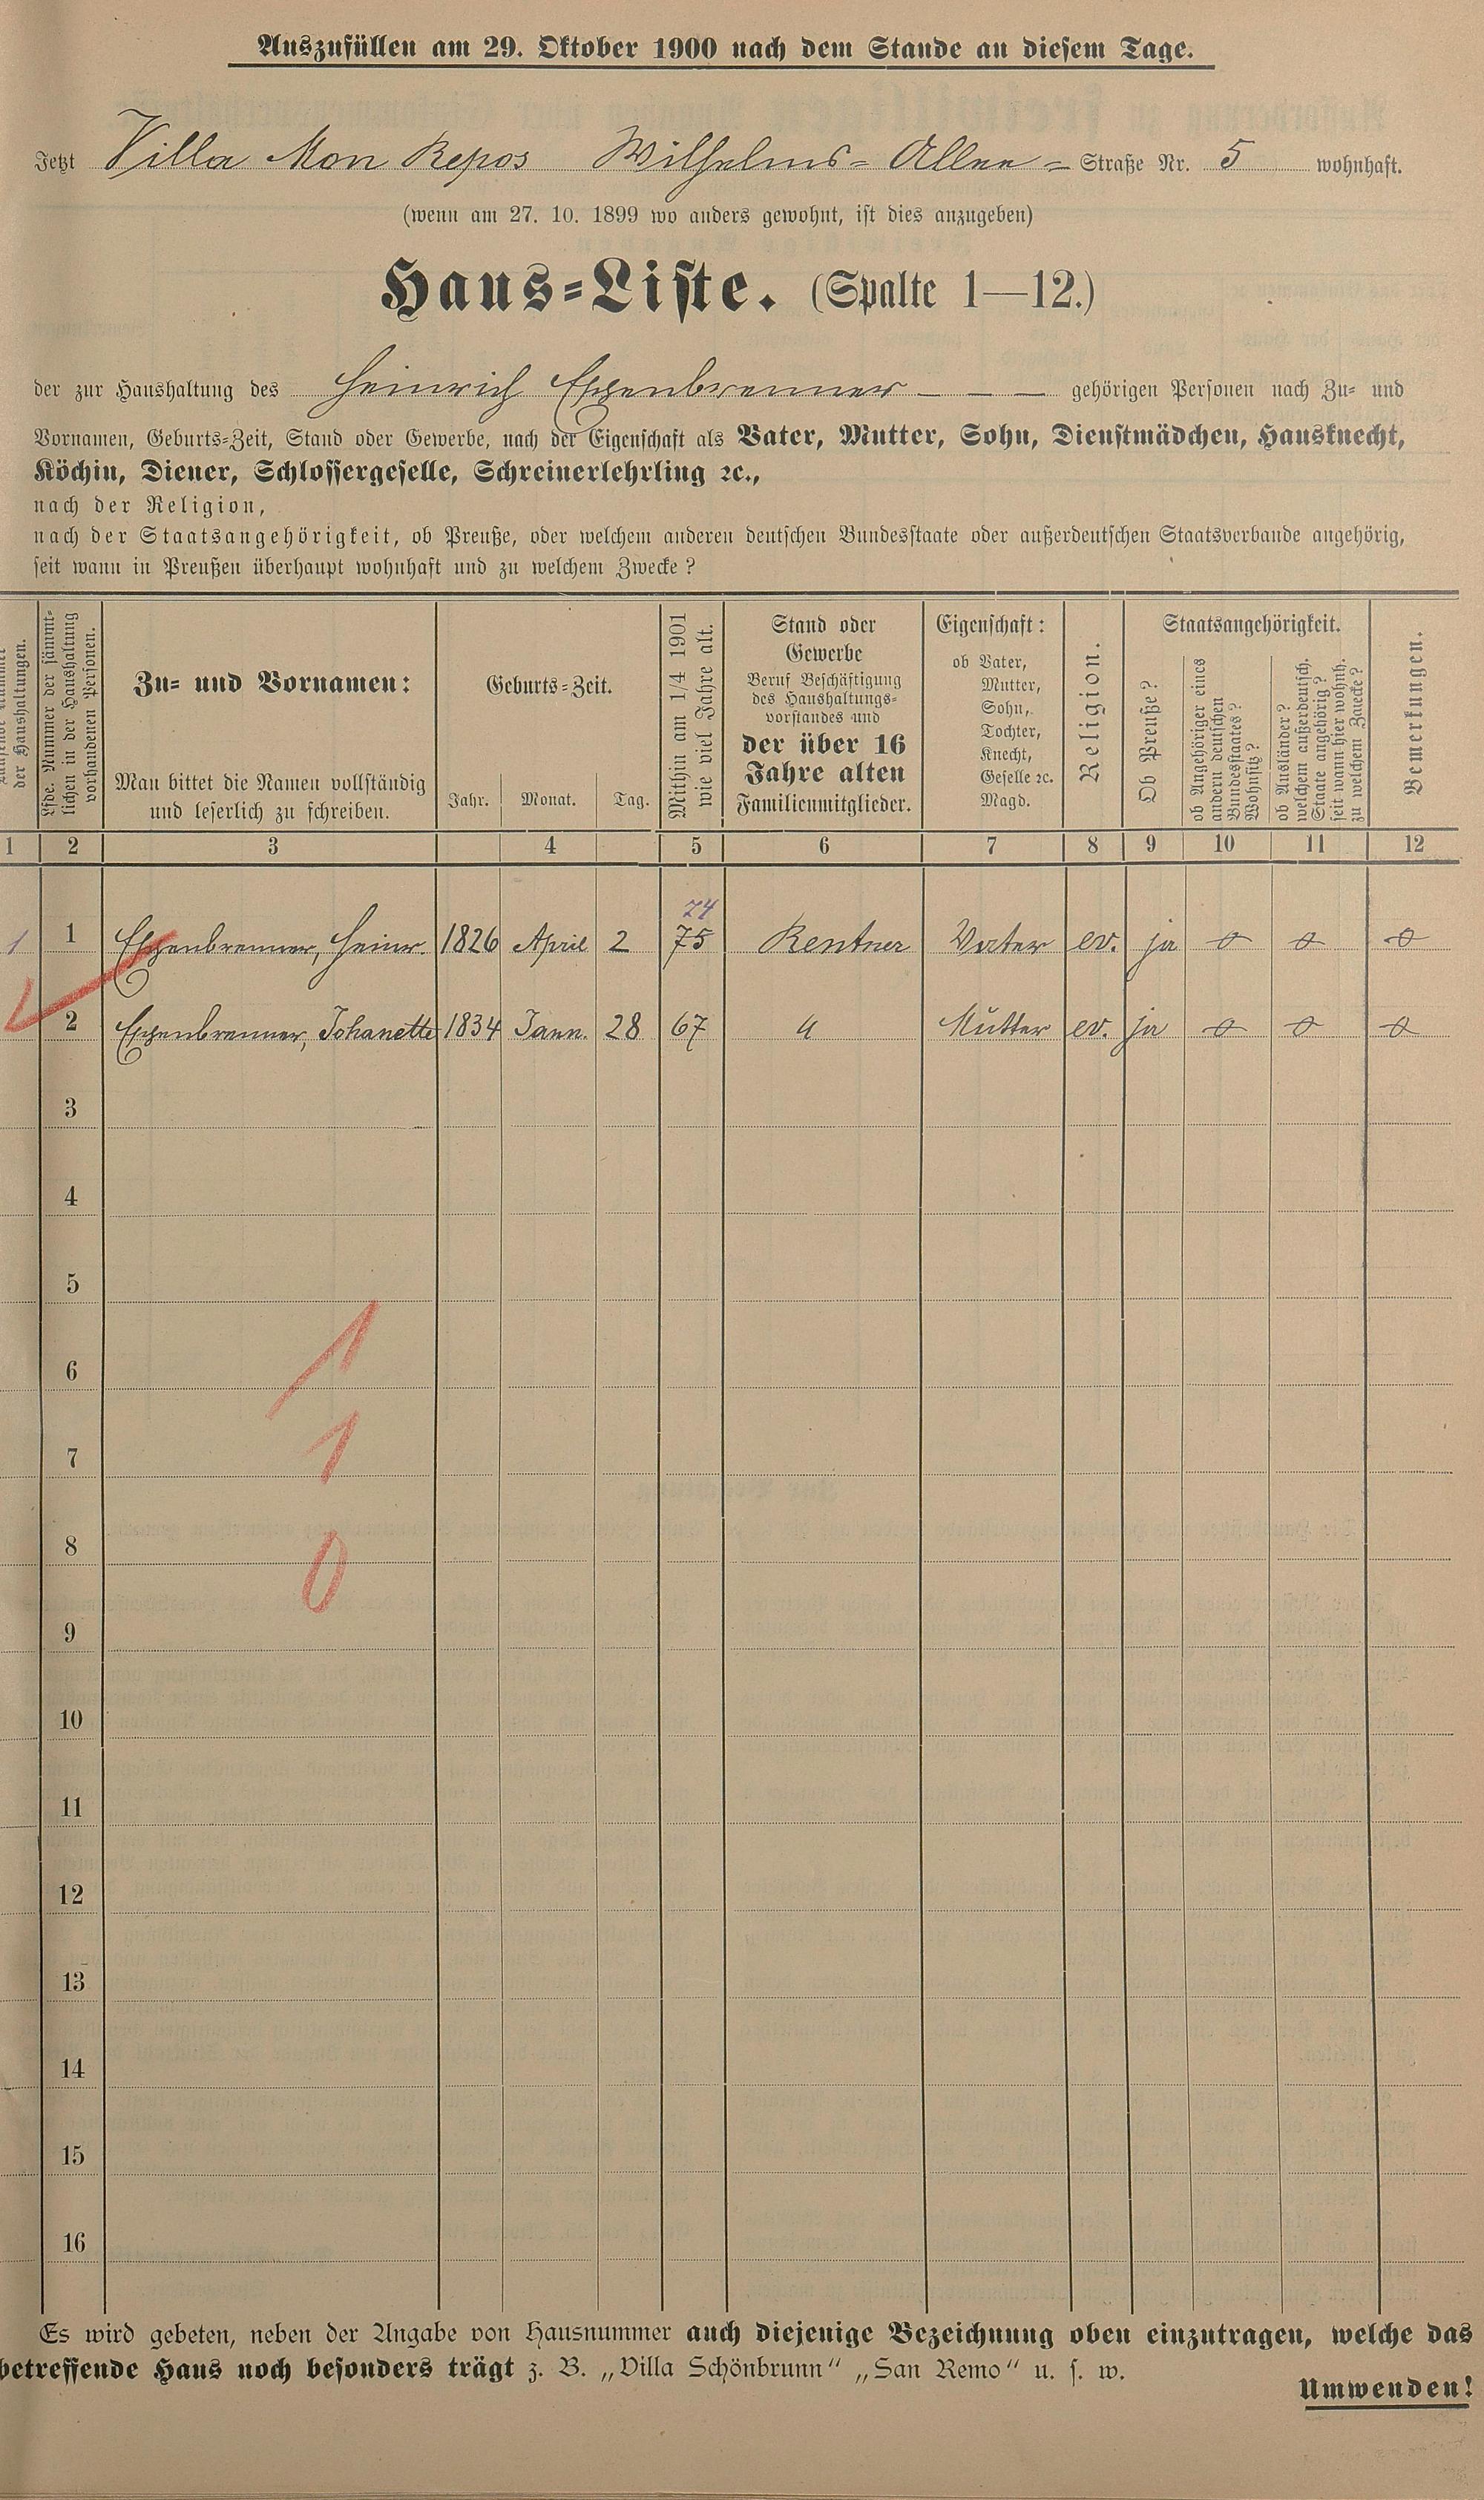 Auszufüllen am 29. Oktober 1900 nach dem Stande an diesem Tage.
Jetzt Villa Mon Repos Wilhelms- Allee - Straße Nr. 5 wohnhaft.
(wenn am 27. 10. 1899 wo anders gewohnt, ist dies anzugeben)
Haus-Liste. (Spalte 1—12.)
der zur Haushaltung des Heinrich Exxenbrenner — — — gehörigen Personen nach Zu- und
Vornamen, Geburts-Zeit, Stand oder Gewerbe, nach der Eigenschaft als Vater, Mutter, Sohn, Dienstmädchen, Hausknecht,
Köchin, Diener, Schlossergeselle, Schreinerlehrling ꝛc.,
nach der Religion,
nach der Staatsangehörigkeit, ob Preuße, oder welchem anderen deutschen Bundesstaate oder außerdeutschen Staatsverbande angehörig,
seit wann in Preußen überhaupt wohnhaft und zu welchem Zwecke?
der Haushaltungen.
Lfde. Nummer der sämmt-
lichen in der Haushaltung
vorhandenen Personen.
Zu- und Vornamen:
Man bittet die Namen vollständig
und leserlich zu schreiben.
Geburts-Zeit.
Jahr. Monat. Tag.
Mithin am 1/4 1901
wie viel Jahre alt.
Stand oder
Gewerbe
Beruf Beschäftigung
des Haushaltungs-
vorstandes und
der über 16
Jahre alten
Familienmitglieder.
Eigenschaft:
ob Vater,
Mutter,
Sohn,
Tochter,
Knecht,
Geselle ꝛc.
Magd.
Religion.
Staatsangehörigkeit.
Ob Preuße?
ob Angehöriger eines
andern deutschen
Bundesstaates?
Wohnsitz?
ob Ausländer?
welchem außerdeutsch.
Staate angehörig?
seit wann hier wohnh.
zu welchem Zwecke?
Bemerkungen.
1 2 3 4 5 6 7 8 9 10 11 12
74
1 1 Exxenbrenner, Heinr. 1826 April 2 75 Rentner Vater ev. ja o o o
2 Exxenbrenner, Johanette 1834 Jann. 28 67 Mutter ev. ja o o o
3
4
5
6
1
7
1
8
0
9
10
11
12
13
14
15
16
Es wird gebeten, neben der Angabe von Hausnummer auch diejenige Bezeichnung oben einzutragen, welche das
betreffende Haus noch besonders trägt z. B. „Villa Schönbrunn“ „San Remo“ u. s. w.
Umwenden!